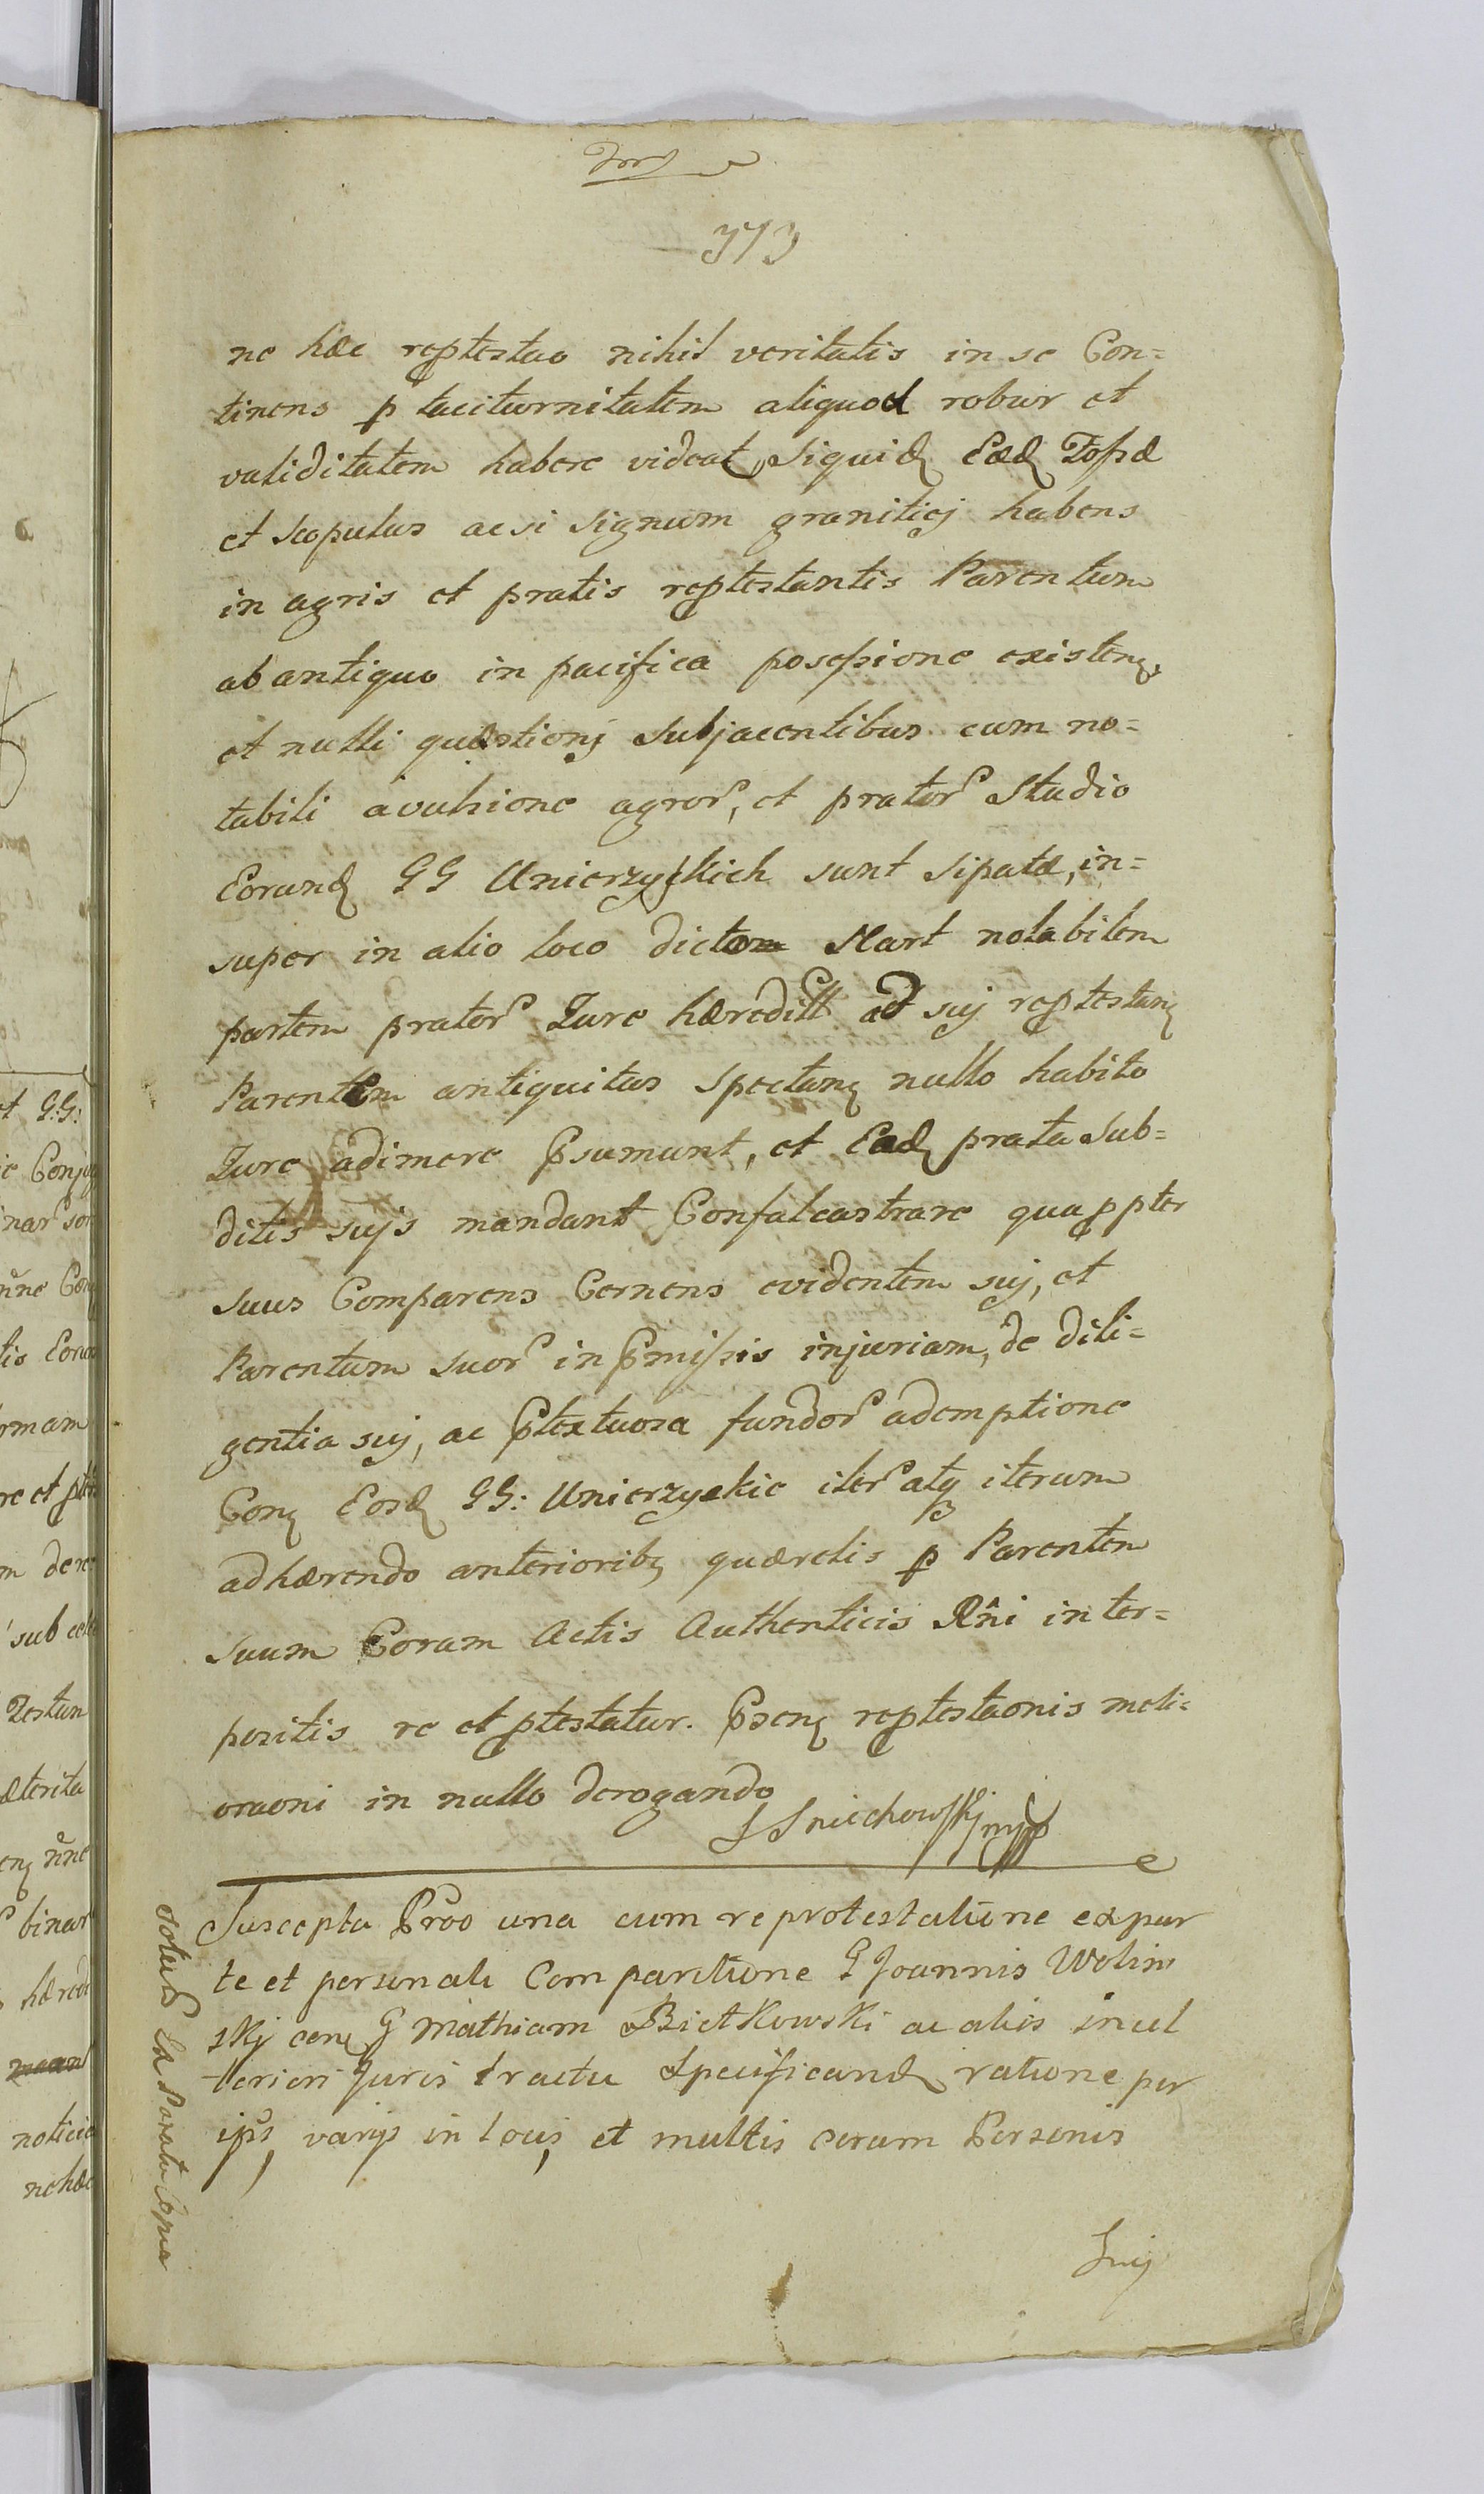 373
ne hæc reptestao nihil veritatis in se Con=
tinens p taciturnitatem aliquod robur et
validitatem habere videat, Siquid Eæd Fossæ
et scopulus ac si signum granitiej habens
in agris et pratis reptestantis Parentum
ab antiquo in pacifica possessione existen
et nulli quæstionj subjacentibus cum no=
tabili avulsione agror, et prator Studio
Eorund GG Unierzyskich sunt sipatæ, in=
super in alio loco dicto Kart notabilem
partem prator Jure hæreditt ad suj reptestan
Parentem antiquitus spectan nullo habito
Jure adimere Psumunt, et Ead prata Sub=
ditis sujs mandant Confalcastrare quappter
suus Comparens Cernens evidentem suj, et
Parentum suor in Pmissis injuriam, de dili=
gentia suj, ac Ptextuosa fundor ademptione
Con Eosd GG: Unierzyskie iter atq iterum
adhærendo anteriorib quærelis p Parentem
suum Coram Actis Authenticis Rñi inter=
positis re et ptestatur. Psen reptestaonis meli=
oraoni in nullo derogando
S Sniechowskj mpp
Suscepta Proo una cum reprotestatione expar
te et personali Comparitione G Joannis Wolin
skj con G Mathiam Bietkowski ac aliis in ul
teriori Juris tractu Specificand ratione per
ips varijs in locis, et multis coram Personis
Suj
solut Ex Parata Copia